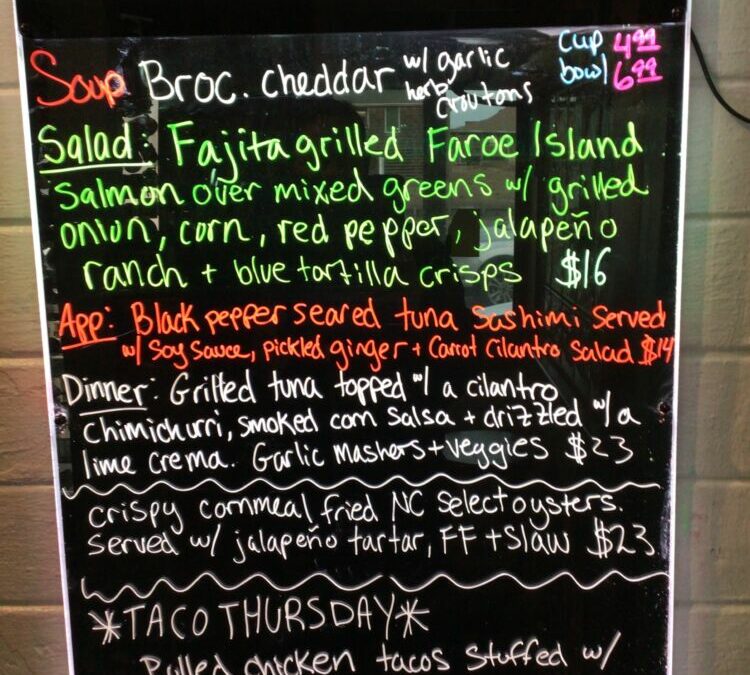 Soup Broc. cheddar w/ garlic herb croutons
cup 4.99
bowl 6.99
Salad: Fajita grilled Faroe Island
Salmon over mixed greens w/ grilled
onion, corn, red pepper, jalapeño
ranch + blue tortilla crisps $16
App: Black pepper seared tuna Sashimi Served
w/ Soy Sauce, pickled ginger + Carrot Cilantro Salad $14
Dinner: Grilled tuna topped w/ a cilantro
chimichurri, smoked corn salsa + drizzled w/ a
lime crema. Garlic Mashers + veggies $23
crispy cornmeal fried NC Select oysters.
Served w/ jalapeño tartar, FF + Slaw $23
*TACO THURSDAY*
Pulled chicken tacos stuffed w/